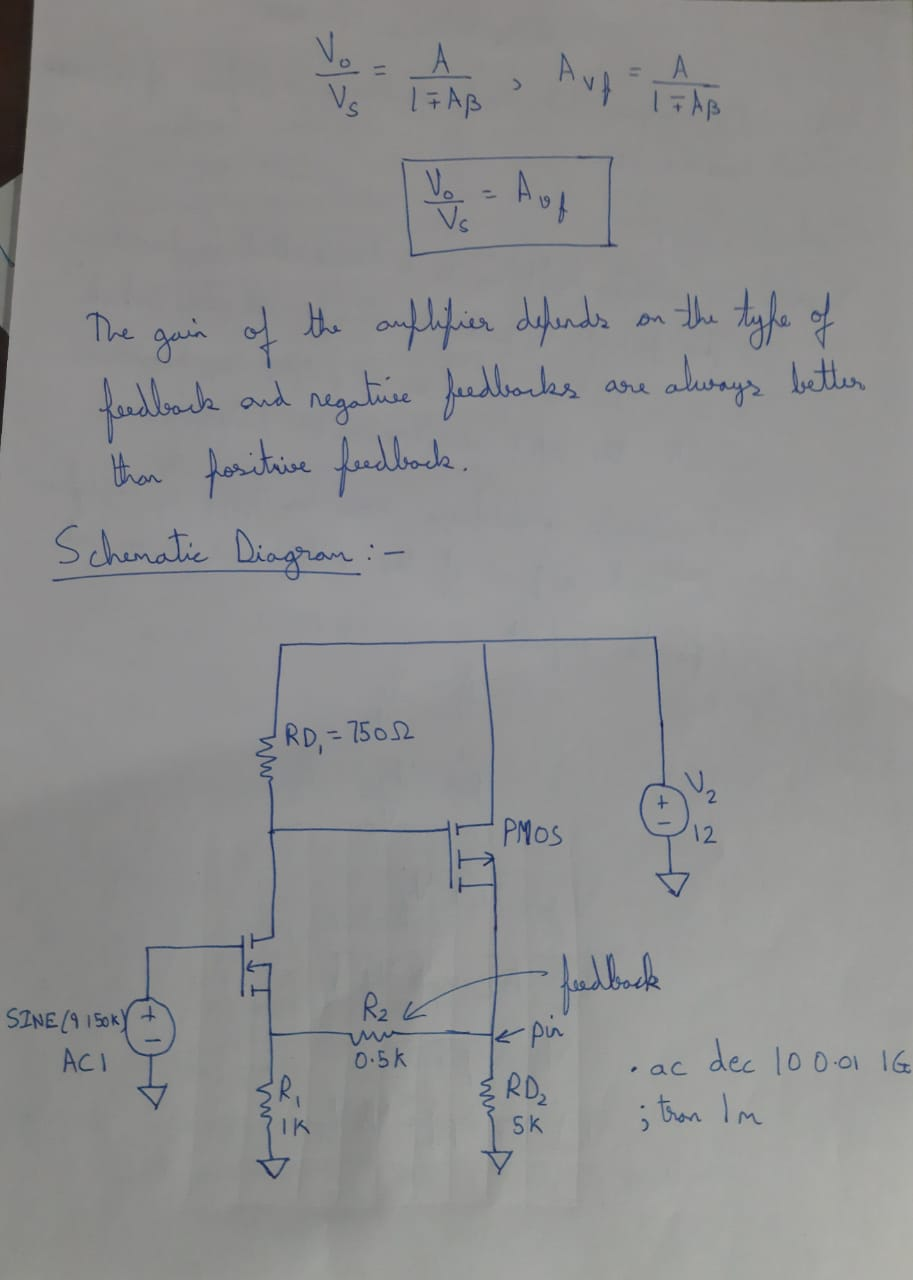 Vo/Vs = A/(1∓Aβ) , Avf = A/(1∓Aβ)
Vo/Vs = Avf
The gain of the amplifier depends on the type of
feedback and negative feedbacks are always better
than positive feedback.
Schematic Diagram :-
RD₁ = 750Ω
PMOS
V₂
12
feedback
SINE(9 150K)
AC 1
R₂
0.5K
pin
R₁
1K
RD₂
5K
.ac dec 10 0.01 1G
;tran 1m